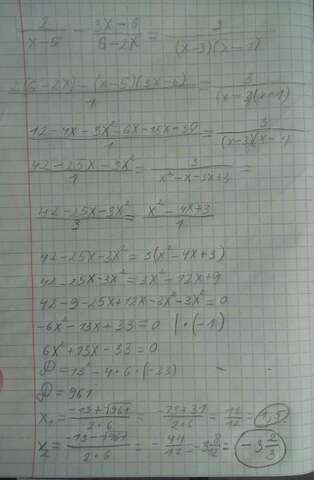 2/(x-5) - (3x-6)/(6-2x) = 3/((x-3)(x-1))
(2(6-2x)-(x-5)(3x-6))/1 = 3/((x-3)(x-1))
(12-4x-3x²-6x-15x+30)/1 = 3/((x-3)(x-1))
(42-25x-3x²)/1 = 3/(x²-x-3x+3) =
(42-25x-3x²)/3 = (x²-4x+3)/1
42-25x-3x² = 3(x²-4x+3)
42-25x-3x² = 3x²-12x+9
42-9-25x+12x-3x²-3x² = 0
-6x²-13x+33 = 0 | ·(-1)
6x²+13x-33 = 0
D = 13²-4·6·(-33)
D = 961
x₁ = (-13+√961)/(2·6) = (-13+31)/(2·6) = 18/12 = 1,5
x₂ = (-13-√961)/(2·6) = -44/12 = -3 8/12 = -3 2/3